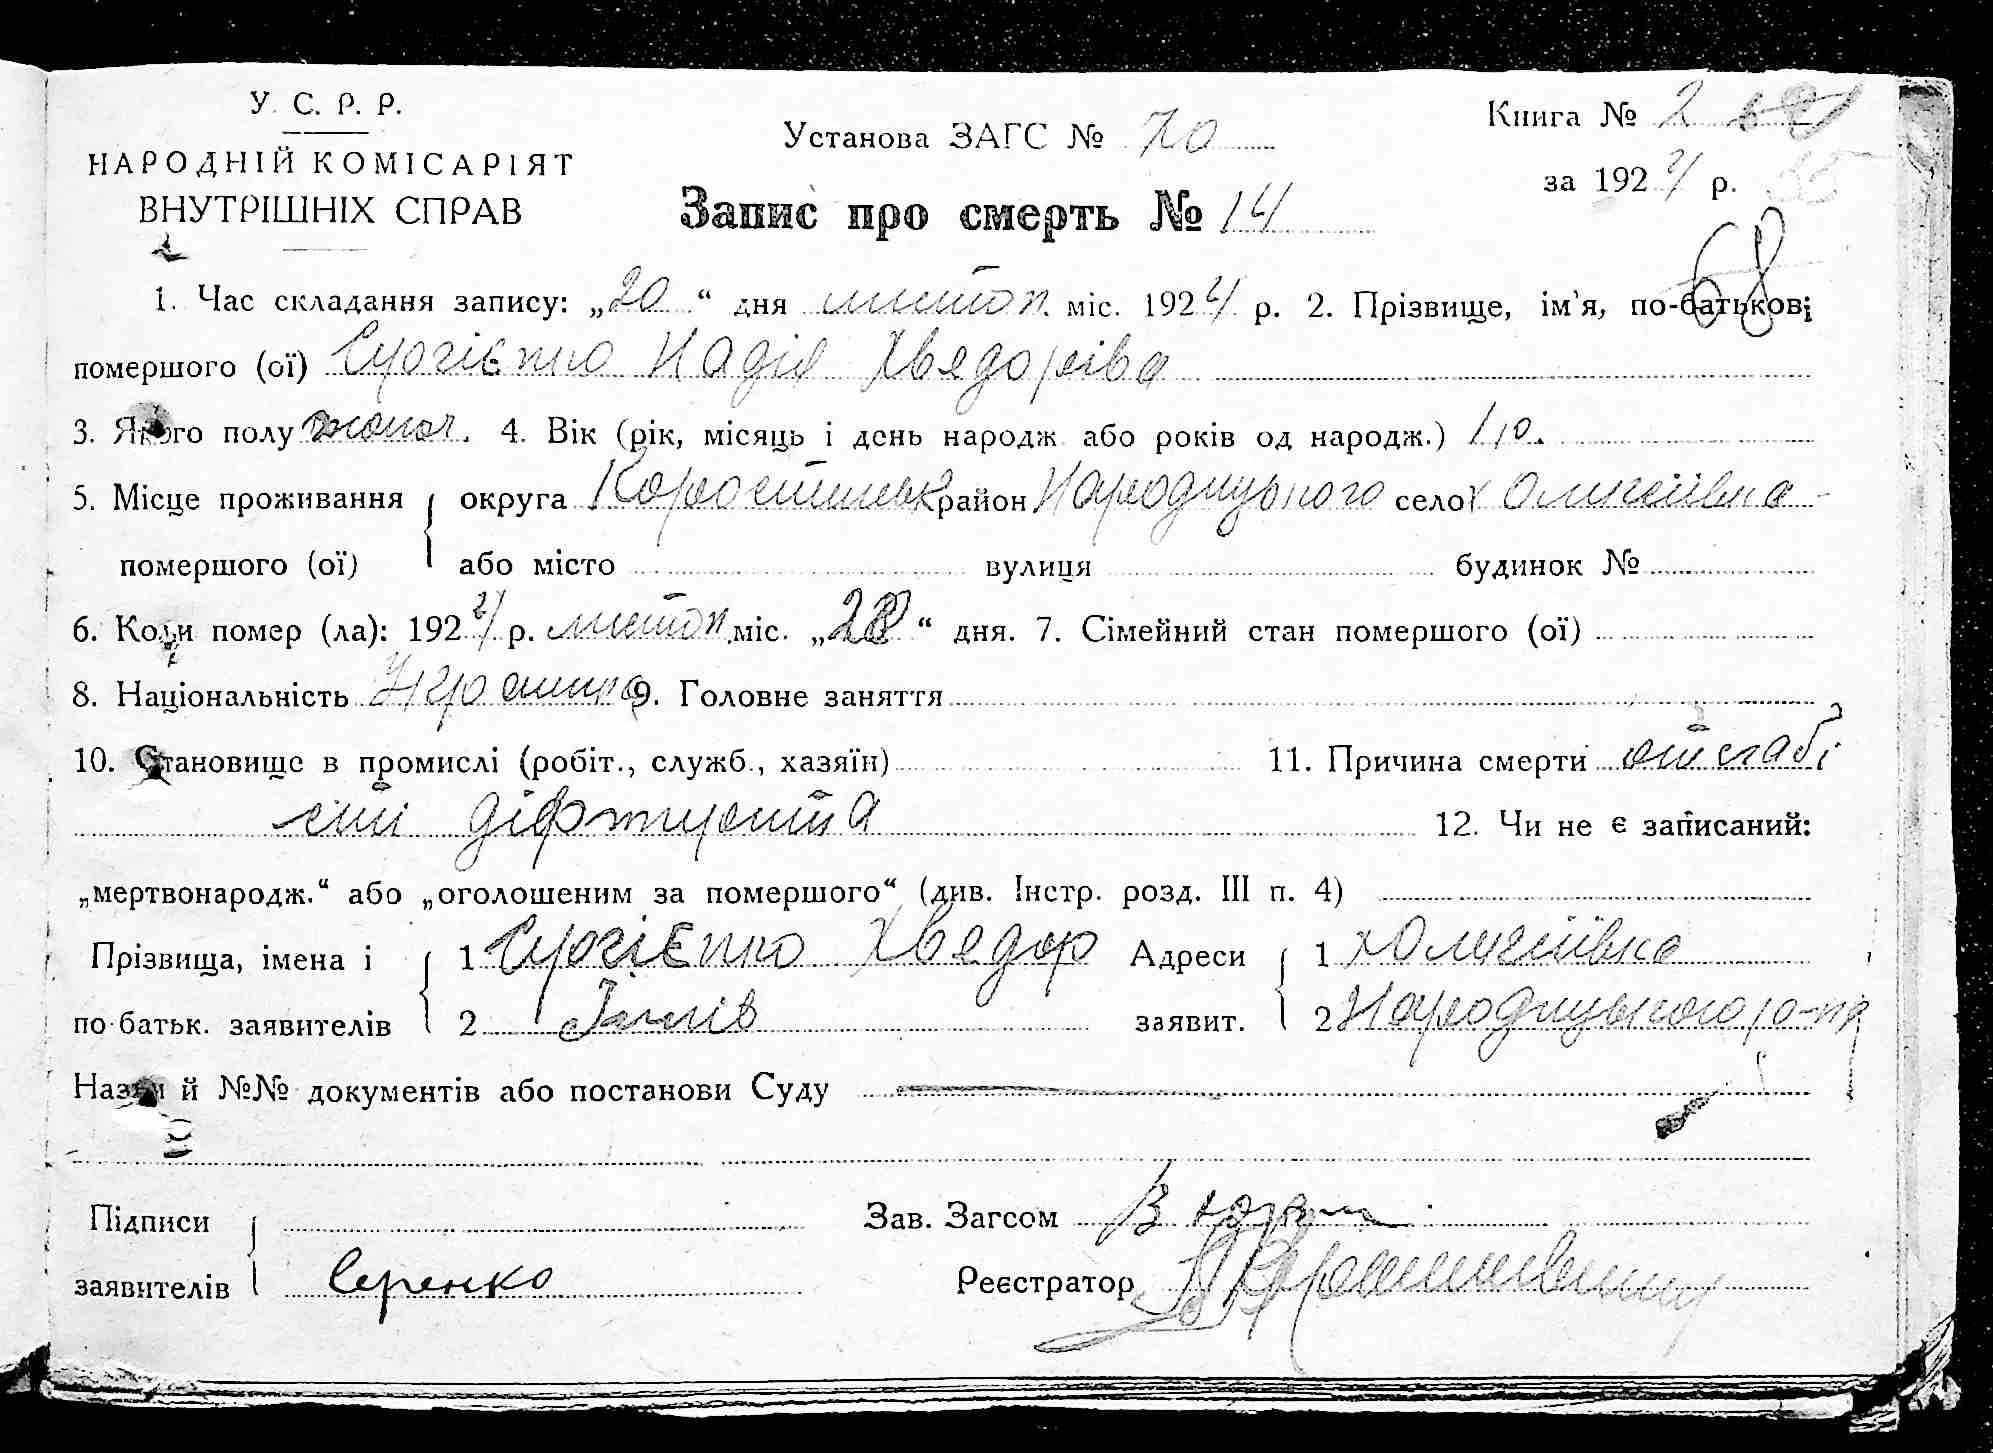 У. С. Р. Р.
НАРОДНІЙ КОМІСАРІЯТ
ВНУТРІШНІХ СПРАВ
Установа ЗАГС № 70
Книга № 2
за 1924 р.
Запис про смерть № 14
68
1. Час складання запису: „20“ дня листоп. міс. 1924 р. 2. Прізвище, ім'я, по-батькові
помершого (ої) Сергієнко Надія Хведорівa
3. Якого полу жоноч. 4. Вік (рік, місяць і день народж або років од народж.) 1 р.
5. Місце проживання округа Коростинськ район Народицького село х Олексіївка
помершого (ої) або місто вулиця будинок №
6. Коли помер (ла): 1924 р. листоп. міс. „“ дня. 7. Сімейний стан помершого (ої)
8. Національність Україн 9. Головне заняття
10. Становище в промислі (робіт., служб., хазяїн) 11. Причина смерти от слабі
діфтерита 12. Чи не є записаний:
„мертвонародж.“ або „оголошеним за помершого“ (див. Інстр. розд. III п. 4)
Прізвища, імена і 1 Сергієнко Хведор Адреси 1 х Олексіївка
по-батьк. заявителів 2 заявит. 2 Народицького р-на
Назви й №№ документів або постанови Суду
Підписи Зав. Загсом
заявителів Серенко Реєстратор